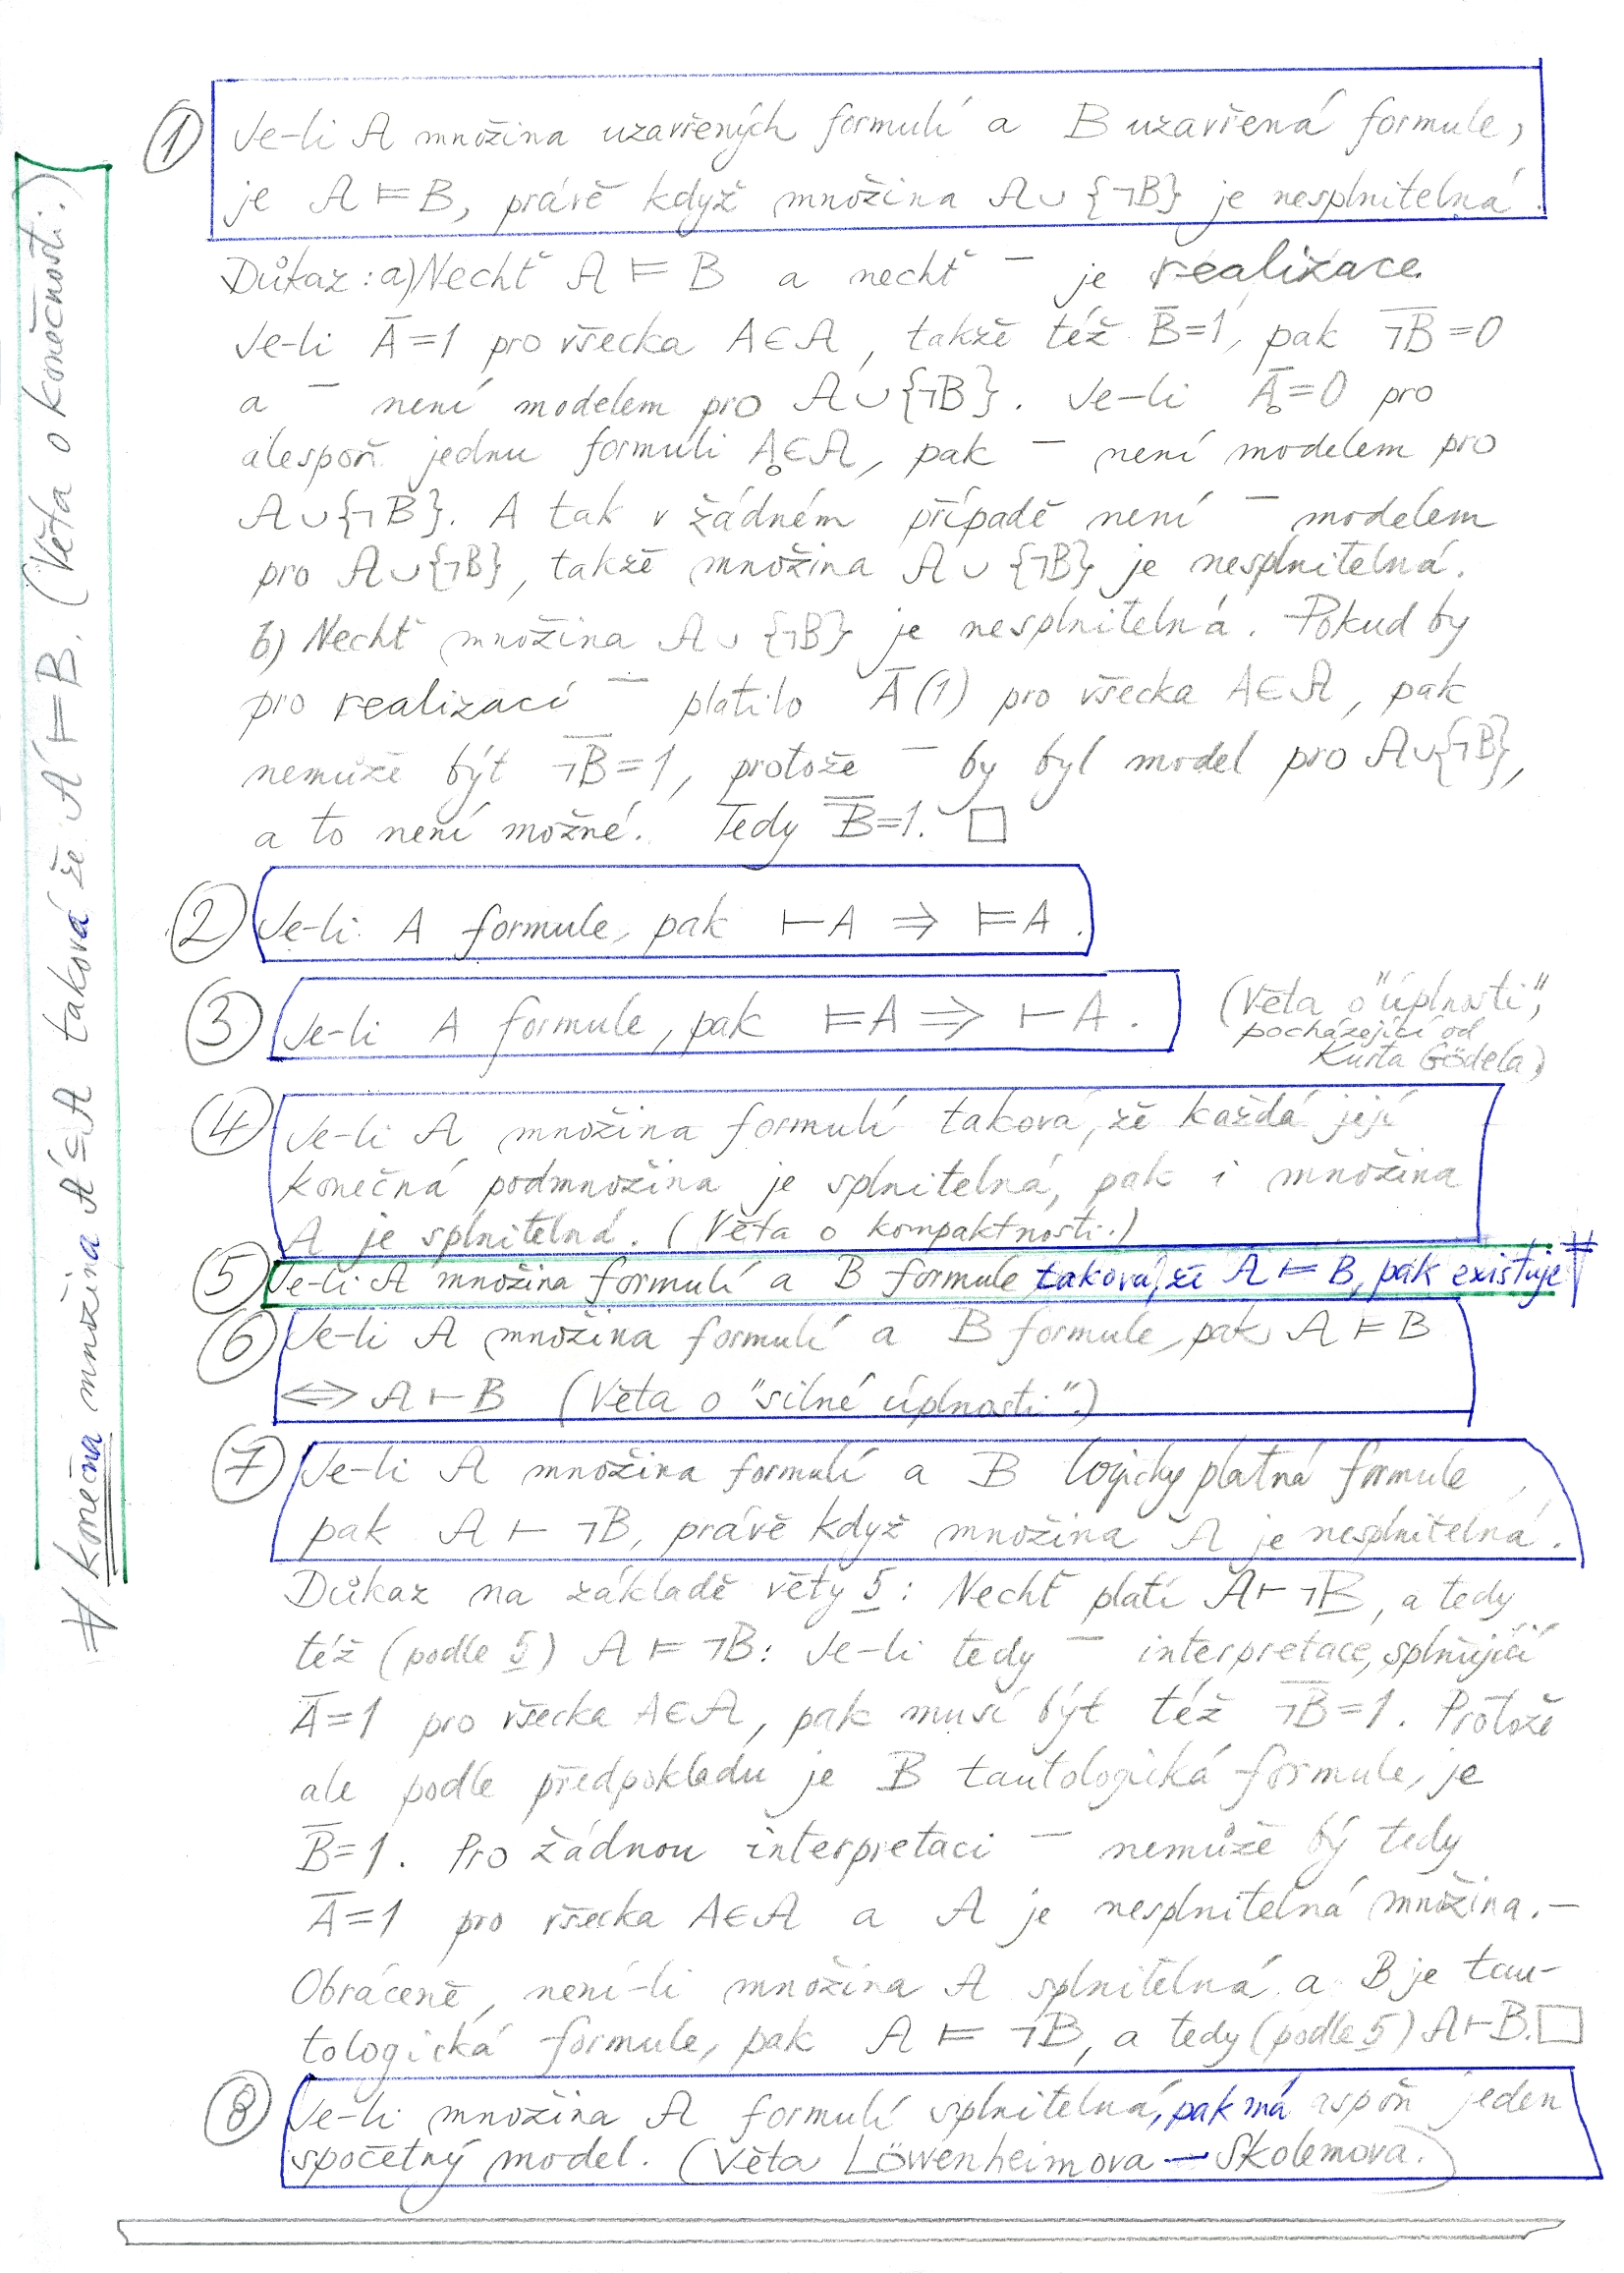 ① Je-li 𝒜 množina uzavřených formulí a B uzavřená formule,
je 𝒜 ⊨ B, právě když množina 𝒜 ∪ {¬B} je nesplnitelná.
Důkaz: a) Nechť 𝒜 ⊨ B a nechť ¯ je realizace.
Je-li A̅ = 1 pro všecka A ∈ 𝒜, takže též B̅ = 1, pak ¬B̅ = 0
a ¯ není modelem pro 𝒜 ∪ {¬B}. Je-li A̅₀ = 0 pro
alespoň jednu formuli A₀ ∈ 𝒜, pak ¯ není modelem pro
𝒜 ∪ {¬B}. A tak v žádném případě není ¯ modelem
pro 𝒜 ∪ {¬B}, takže množina 𝒜 ∪ {¬B} je nesplnitelná.
b) Nechť množina 𝒜 ∪ {¬B} je nesplnitelná. Pokud by
pro realizaci ¯ platilo A̅ (1) pro všecka A ∈ 𝒜, pak
nemůže být ¬B̅ = 1, protože ¯ by byl model pro 𝒜 ∪ {¬B},
a to není možné. Tedy B̅ = 1. □
② Je-li A formule, pak ⊢ A ⇒ ⊨ A.
③ Je-li A formule, pak ⊨ A ⇒ ⊢ A. (Věta o "úplnosti",
pocházející od
Kurta Gödela)
④ Je-li 𝒜 množina formulí taková, že každá její
konečná podmnožina je splnitelná, pak i množina
𝒜 je splnitelná. (Věta o kompaktnosti.)
⑤ Je-li 𝒜 množina formulí a B formule taková, že 𝒜 ⊨ B, pak existuje
konečná množina 𝒜' ⊆ 𝒜 taková že 𝒜' ⊨ B. (Věta o konečnosti.)
⑥ Je-li 𝒜 množina formulí a B formule, pak 𝒜 ⊨ B
⇔ 𝒜 ⊢ B (Věta o "silné úplnosti".)
⑦ Je-li 𝒜 množina formulí a B logicky platná formule,
pak 𝒜 ⊢ ¬B, právě když množina 𝒜 je nesplnitelná.
Důkaz na základě věty 5: Nechť platí 𝒜 ⊢ ¬B, a tedy
též (podle 5) 𝒜 ⊨ ¬B: Je-li tedy ¯ interpretace, splňující
A̅ = 1 pro všecka A ∈ 𝒜, pak musí být též ¬B̅ = 1. Protože
ale podle předpokladu je B tautologická formule, je
B̅ = 1. Pro žádnou interpretaci ¯ nemůže bý tedy
A̅ = 1 pro všecka A ∈ 𝒜 a 𝒜 je nesplnitelná množina. –
Obráceně, není-li množina 𝒜 splnitelná a B je tau-
tologická formule, pak 𝒜 ⊨ ¬B, a tedy (podle 5) 𝒜 ⊢ B. □
⑧ Je-li množina 𝒜 formulí splnitelná, pak má aspoň jeden
spočetný model. (Věta Löwenheimova – Skolemova.)